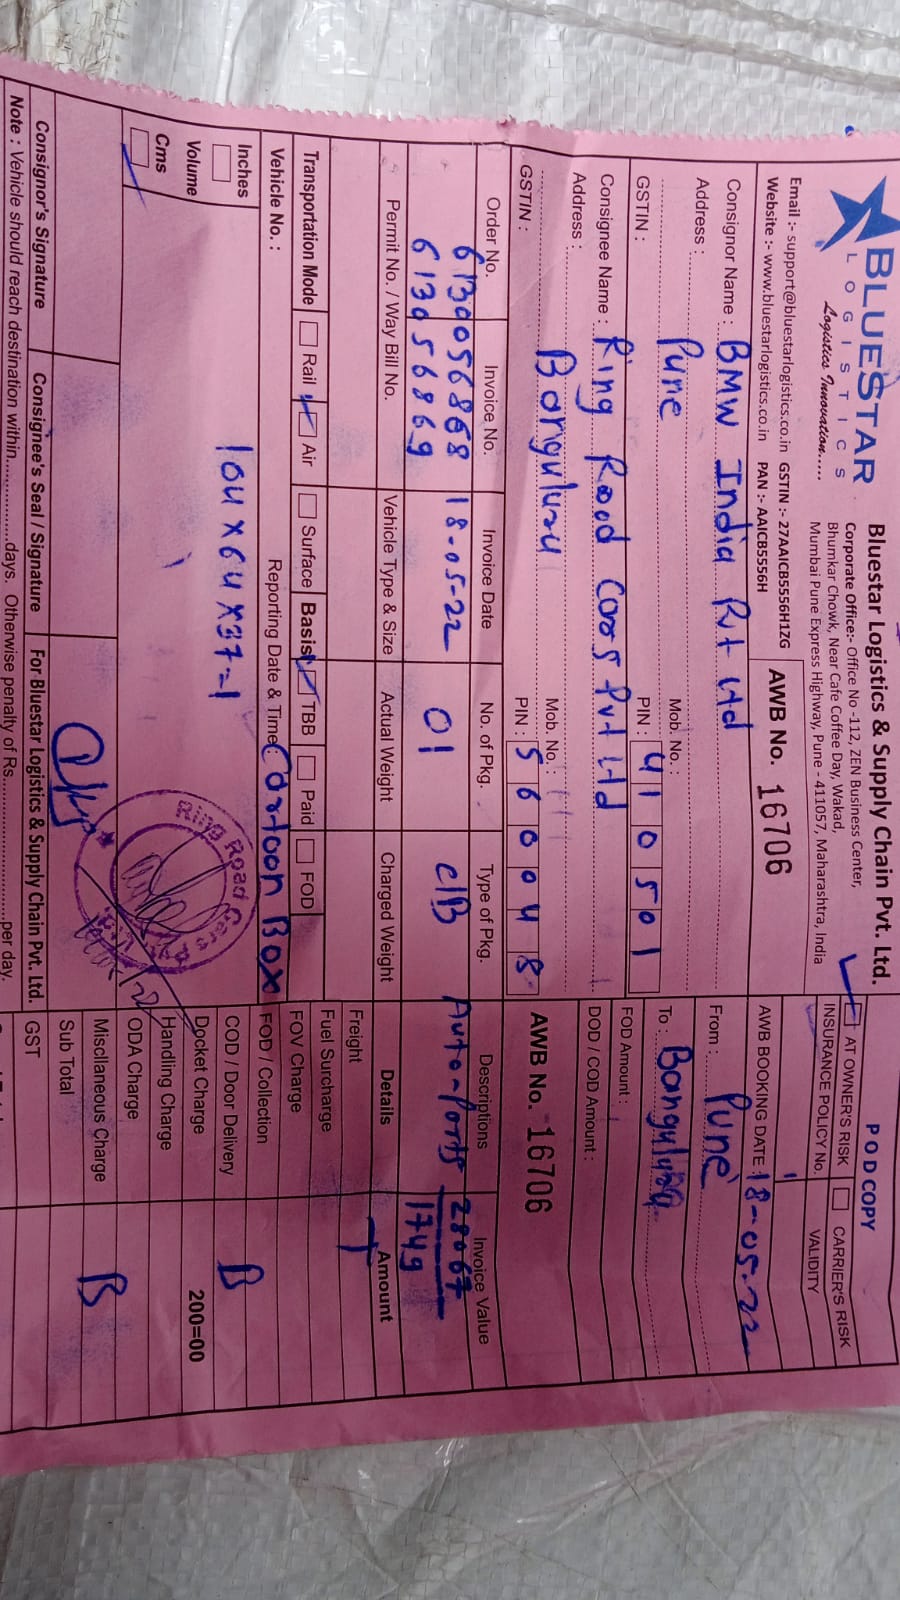 BLUESTAR
LOGISTICS
Logistics Innovation.....
Bluestar Logistics & Supply Chain Pvt. Ltd.
Corporate Office:- Office No -112, ZEN Business Center,
Bhumkar Chowk, Near Cafe Coffee Day, Wakad,
Mumbai Pune Express Highway, Pune - 411057, Maharashtra, India
Email :- support@bluestarlogistics.co.in GSTIN :- 27AAICB5556H1ZG
Website :- www.bluestarlogistics.co.in PAN :- AAICB5556H
AWB No. 16706
POD COPY
AT OWNER'S RISK CARRIER'S RISK
INSURANCE POLICY No. VALIDITY
AWB BOOKING DATE : 18-05-22
From : Pune
To : Bangulura
FOD Amount :
DOD / COD Amount :
AWB No. 16706
Consignor Name : BMW India Pvt Ltd
Address :
Pune Mob. No. :
GSTIN : PIN : 410501
Consignee Name : Ring Road Cars Pvt Ltd
Address :
Banguluru Mob. No. :
GSTIN : PIN : 560048
Order No. Invoice No. Invoice Date No. of Pkg. Type of Pkg. Descriptions Invoice Value
6130056868 18-05-22 01 C/B Auto-Parts 28067
6130056869 1749
Permit No. / Way Bill No. Vehicle Type & Size Actual Weight Charged Weight Details Amount
Freight T
Fuel Surcharge
FOV Charge
FOD / Collection
COD / Door Delivery B
Docket Charge 200=00
Handling Charge
ODA Charge
Miscllaneous Charge B
Sub Total
GST
Transportation Mode Rail Air Surface Basis TBB Paid FOD
Vehicle No. : Reporting Date & Time : Cartoon Box
Inches
Volume
Cms
104 X 64 X 37 = 1
Ring Road Cars Pvt. Ltd.
Consignor's Signature Consignee's Seal / Signature For Bluestar Logistics & Supply Chain Pvt. Ltd.
Note : Vehicle should reach destination within.................days. Otherwise penalty of Rs.............................per day.